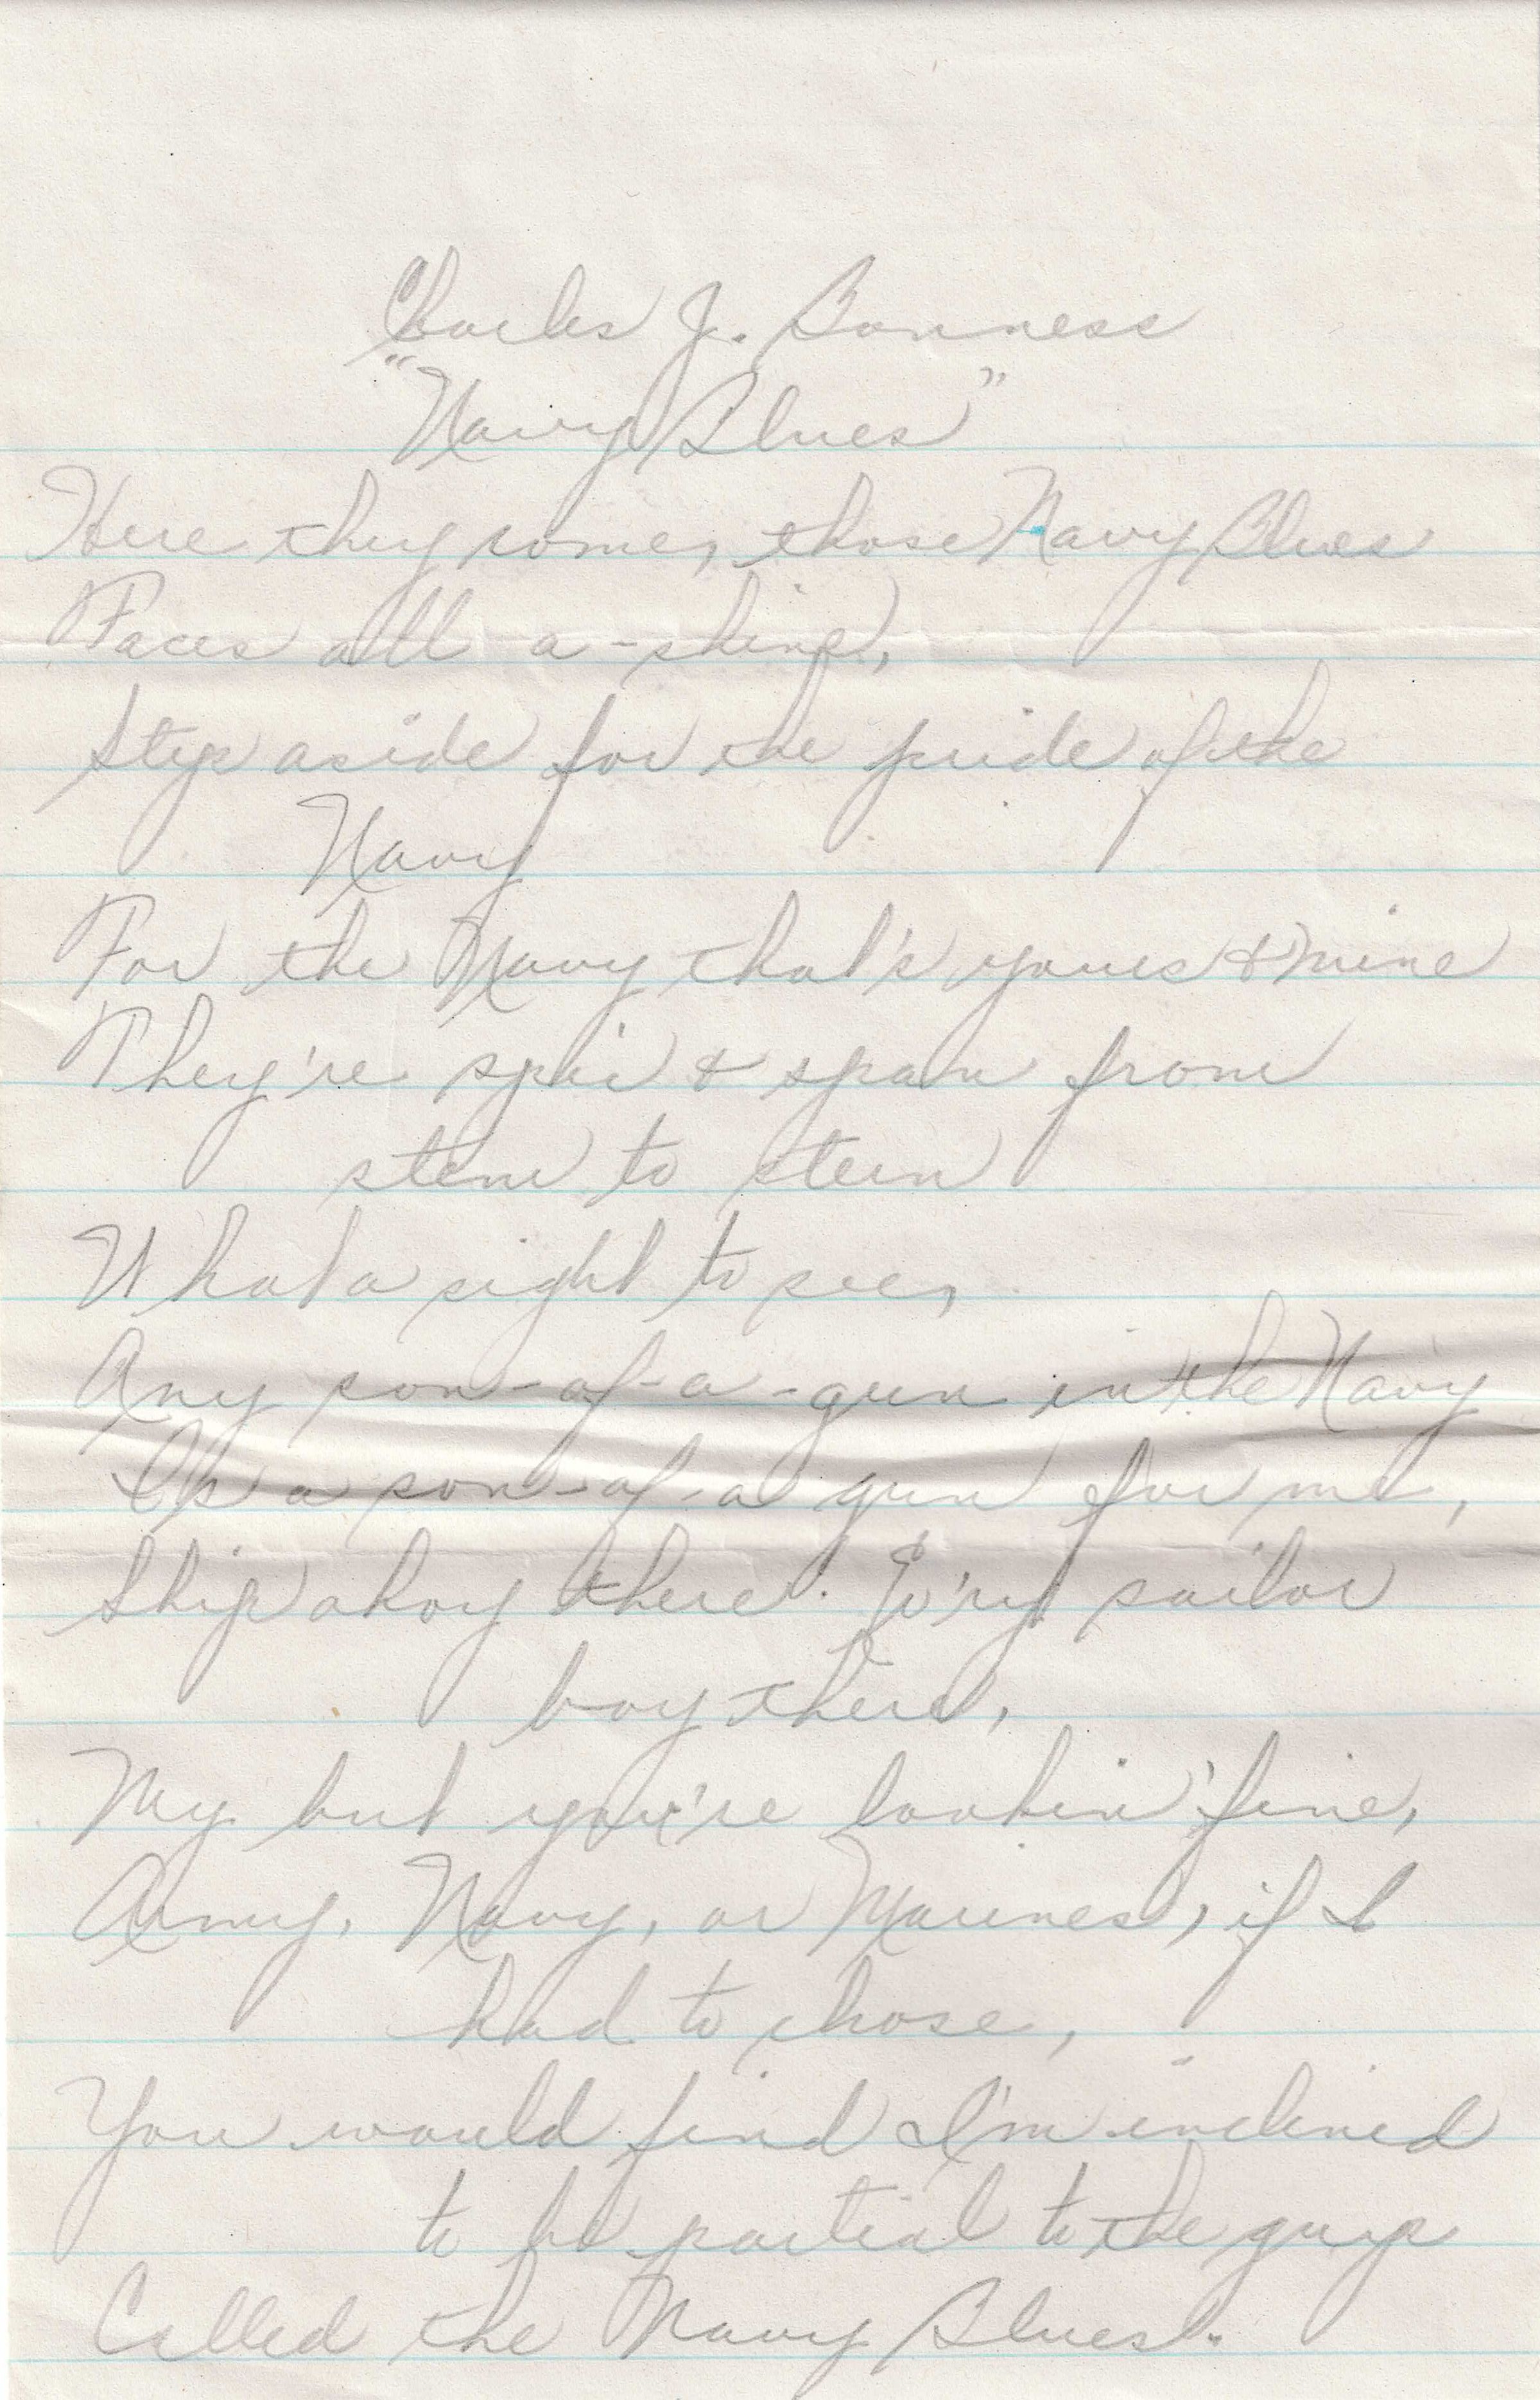 Charles J. Bonness
"Navy Blues"
Here they come, those Navy Blues
Faces all a-shine,
Step aside for the pride of the
Navy
For the Navy that's yours & mine
They're spic & span from
stem to stern
What a sight to see,
Any son-of-a-gun in the Navy
Is a son-of-a gun for me,
Ship ahoy there. Ev'ry sailor
boy there,
My but you're lookin' fine,
Army, Navy, or Marines, if I
had to chose,
You would find I'm inclined
to be partial to the guys
Called the Navy Blues.